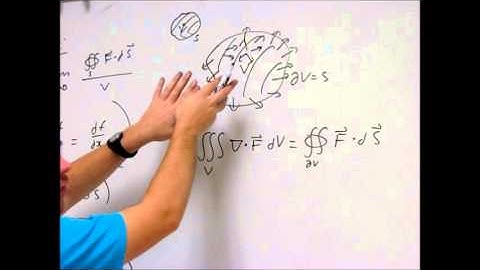 S
∯_S F⃗·dS⃗ / V
∂V=S
= df/dx
∭_V ∇·F⃗ dV = ∯_∂V F⃗·dS⃗